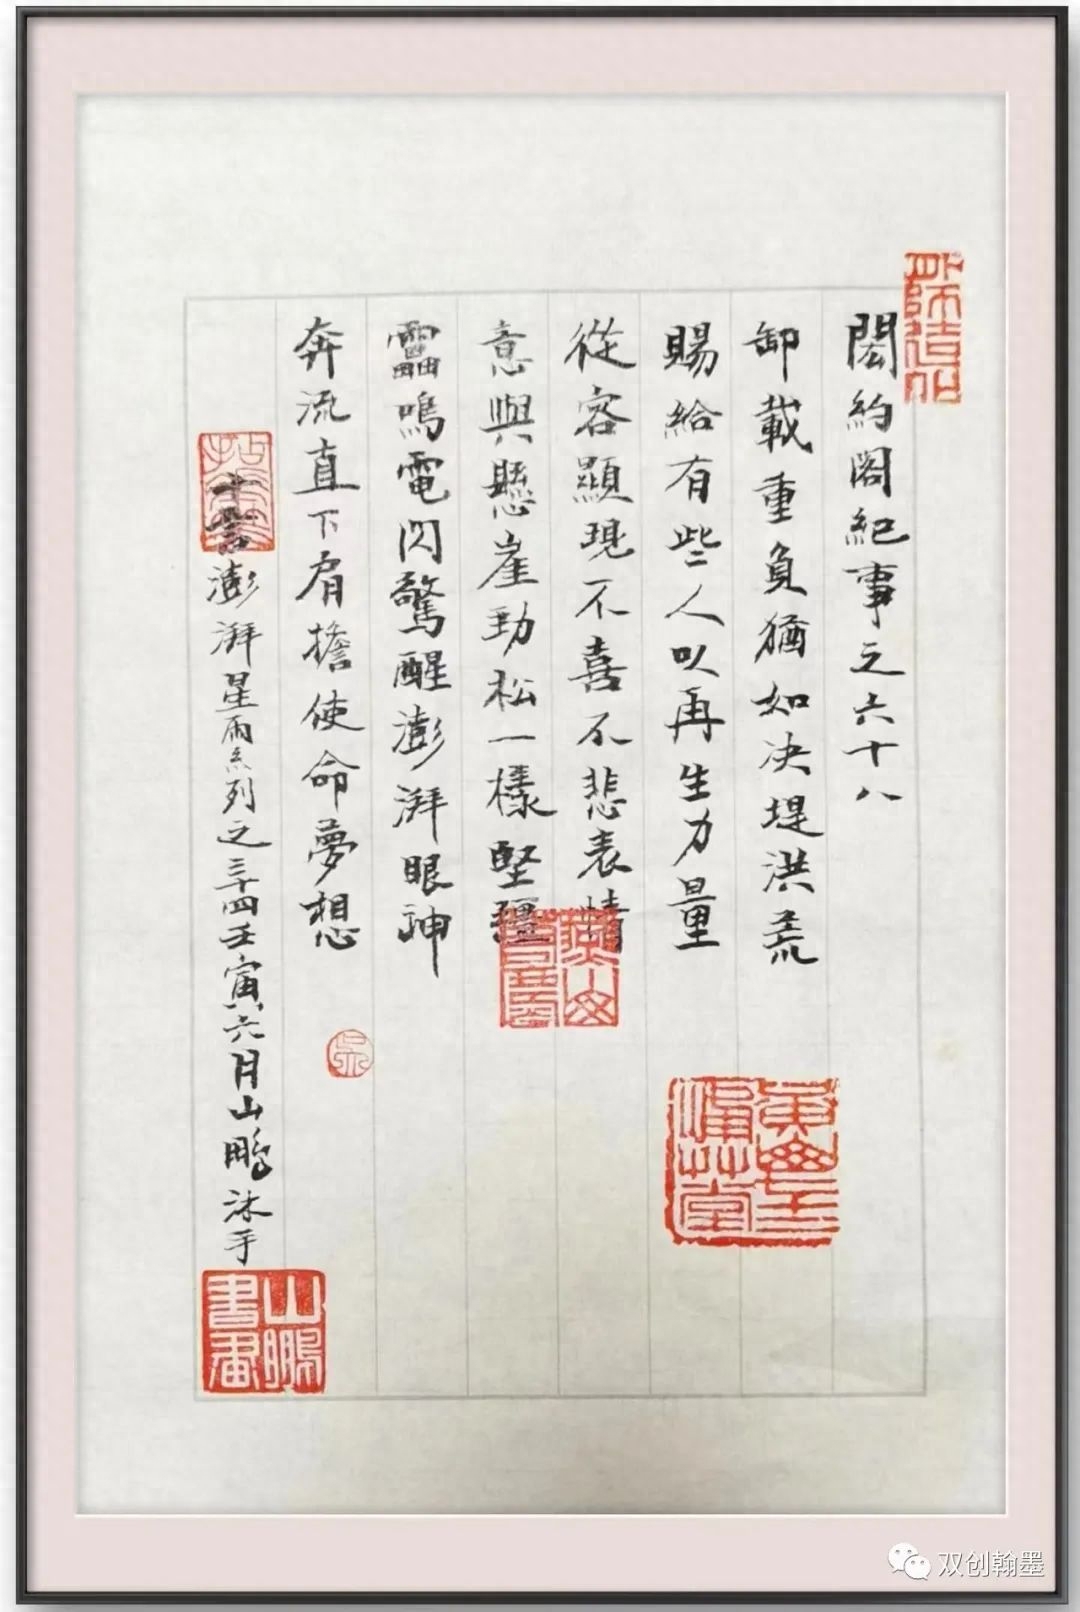 閎約閣紀事之六十八
卸載重負猶如决堤洪荒
賜給有些人以再生力量
從容顯現不喜不悲表情
意與懸崖勁松一樣堅疆
靁鳴電閃驚醒澎湃眼神
奔流直下肩擔使命夢想
十言澎湃星雨系列之三十四壬寅六月山鵬沐手
山鵬書畫
双创翰墨